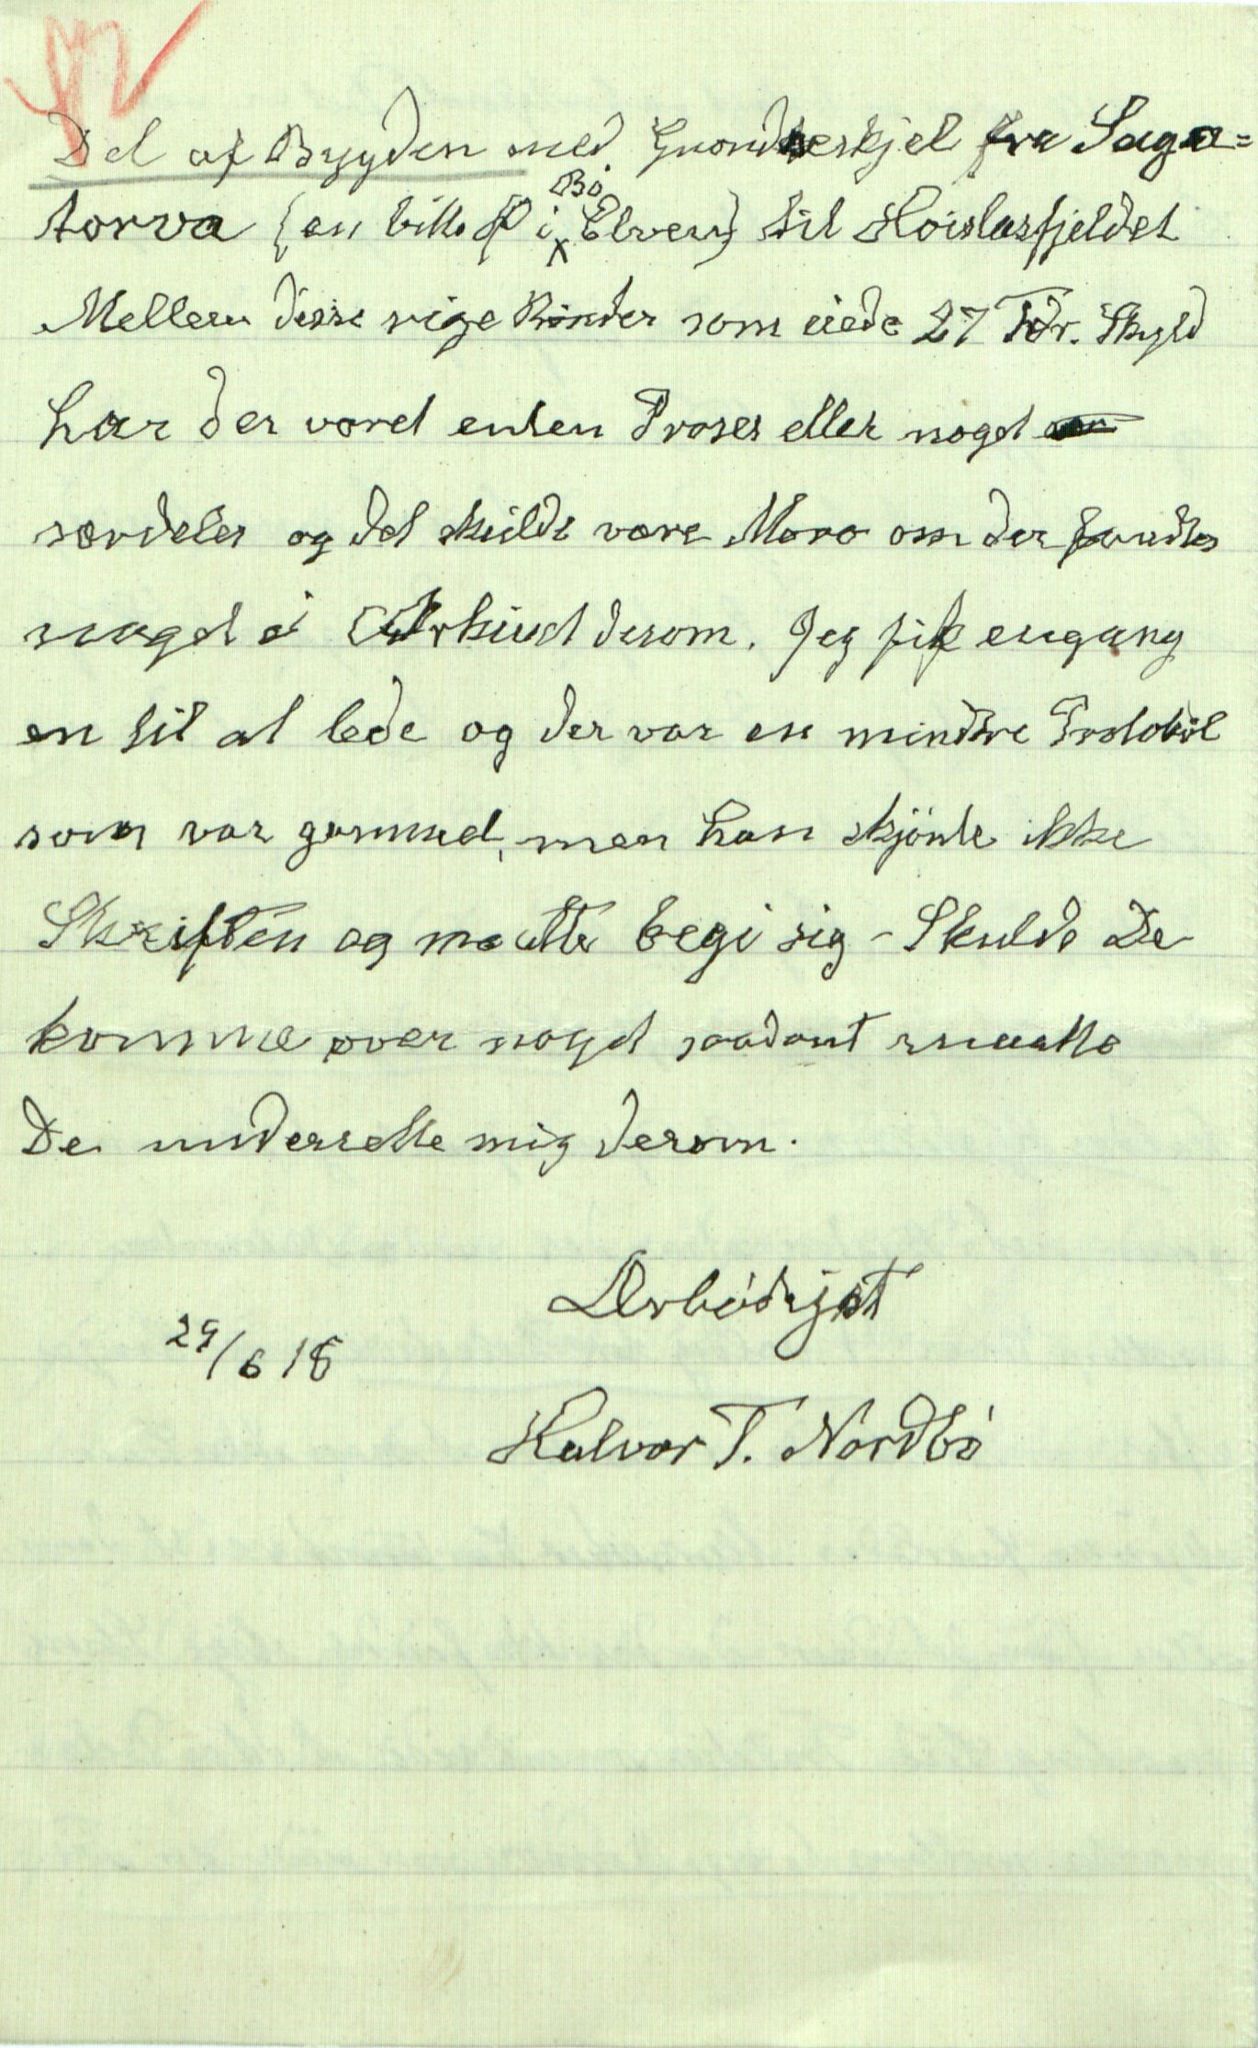 Del af Bygden med Grændseskjel fra Saga=
torva (en liten Ø i Bö Elven) til Höislasfjeldet
Mellem disse rige Bönder som eiede 27 Tdr. Skyld
har der været enten Proses eller noget
særdeles og det skulde være Moro om der fandtes
noget i Arkivet derom. Jeg fik engang
en til at lede og der var en mindre Protokol
som var gammel, men han skjönte ikke
Skriften og maatte begi sig - Skulde De
komme over noget saadant maatte
De underrette mig derom.
Ærbödigst
29/6 18
Halvor T. Nordbö